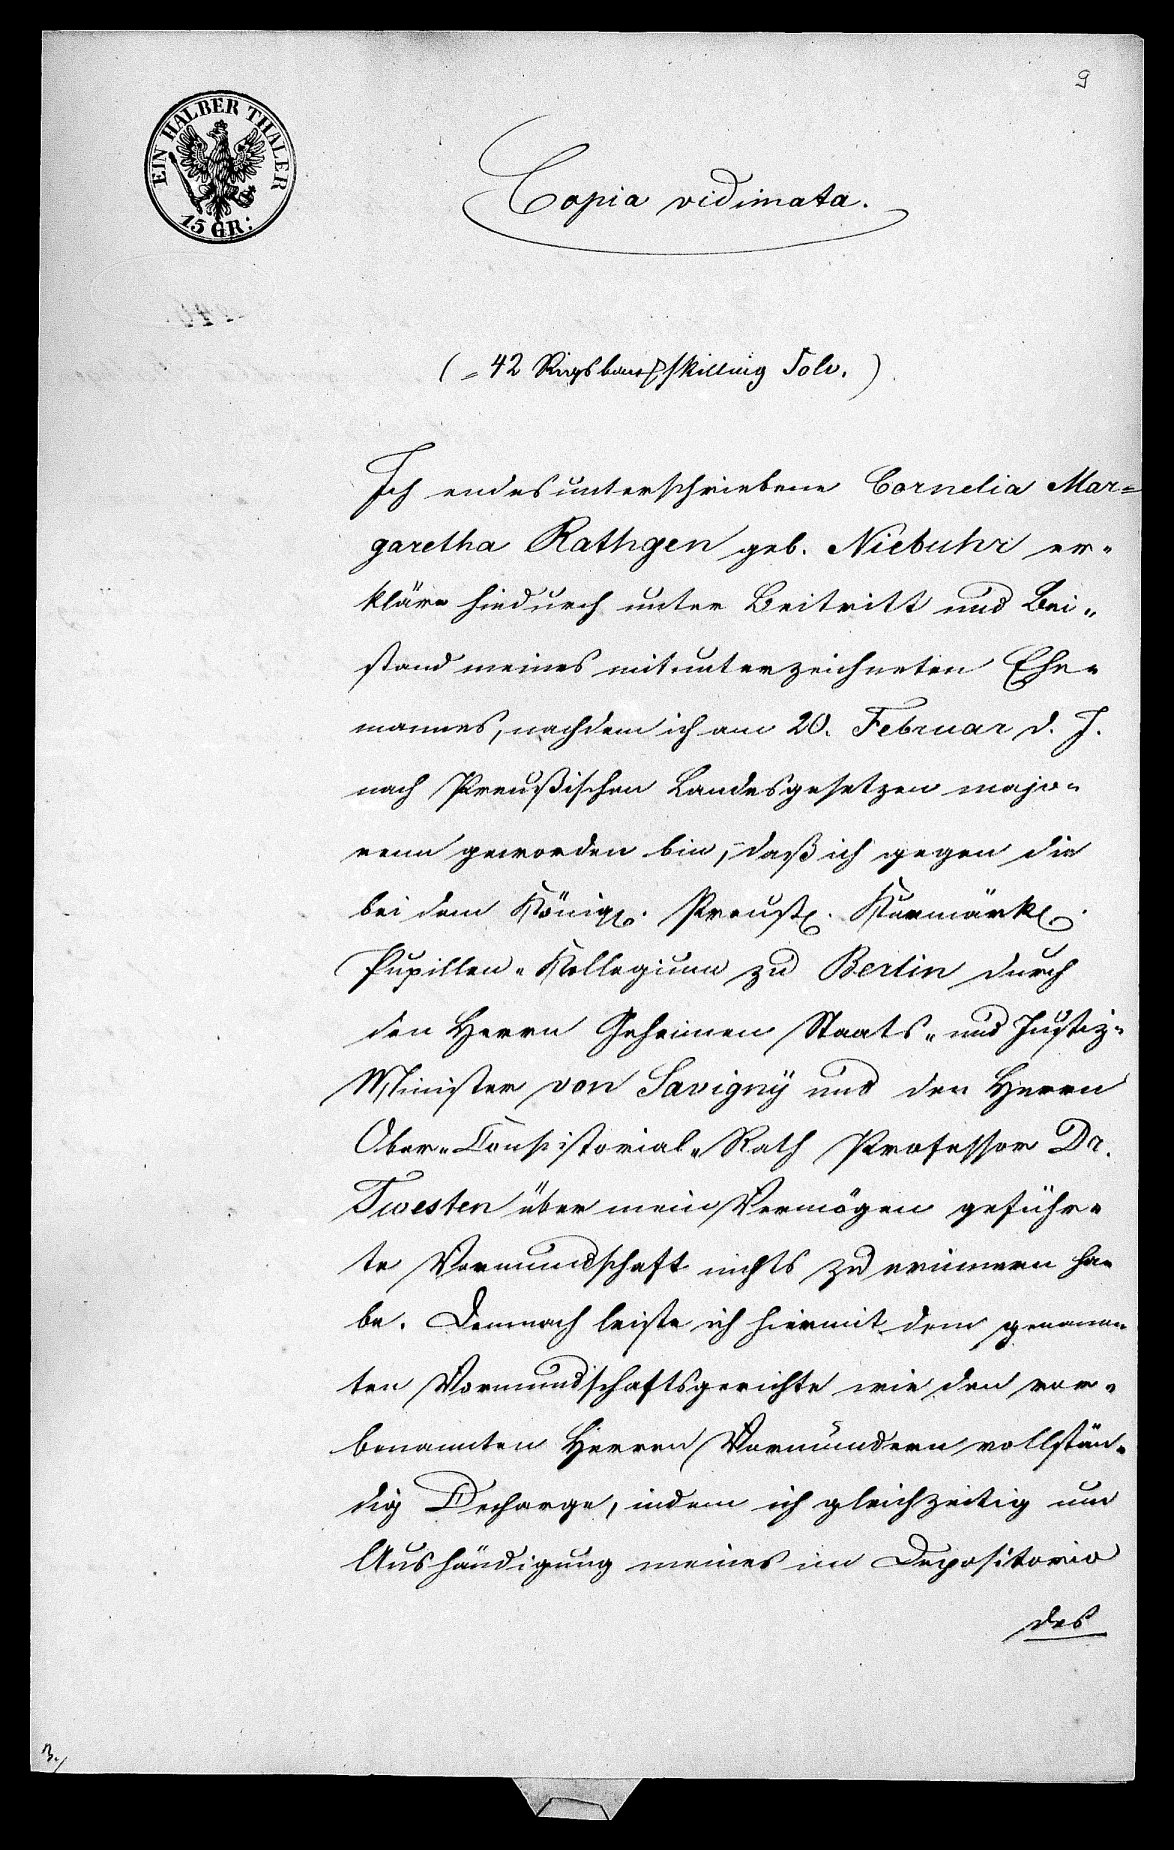 9
EIN HALBER THALER
15 GR:
Copia vidimata.
(= 42 Rigsbank skilling Solv.)
Ich endesunterschriebene Cornelia Mar=
garetha Rathgen geb. Niebuhr er=
kläre hiedurch unter Beitritt und Bei=
stand meines mitunterzeichneten Ehe=
mannes, nachdem ich am 20. Februar d. J.
nach Preußischen Landesgesetzen majo=
renn geworden bin, daß ich gegen die
bei dem Königl. Preuß. Kurmärk.
Pupillen=Kollegium zu Berlin durch
den Herrn Geheimen Staats= und Justiz=
Minister von Savigny und den Herrn
Ober=Consistorial=Rath Professor Dr.
Twesten über mein Vermögen geführ=
te Vormundschaft nichts zu erinnern ha=
be. Demnach leiste ich hiermit dem genann=
ten Vormundschaftsgerichte wie den vor=
benannten Herren Vormündern vollstän=
dig Decharge, indem ich gleichzeitig um
Aushändigung meines im Depositorio
des